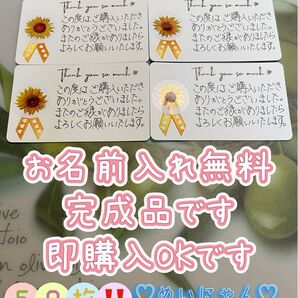 Thank you so much
この度はご購入いただき
ありがとうございました。
またのご縁がありましたら
よろしくお願いいたします。
Thank you so much
この度はご購入いただき
ありがとうございました。
またのご縁がありましたら
よろしくお願いいたします。
Thank you so much
この度はご購入いただき
ありがとうございました。
またのご縁がありましたら
よろしくお願いいたします。
Thank you so much
この度はご購入いただき
ありがとうございました。
またのご縁がありましたら
よろしくお願いいたします。
お名前入れ無料
完成品です
即購入OKです
50枚!!
♡めいにゃん♡